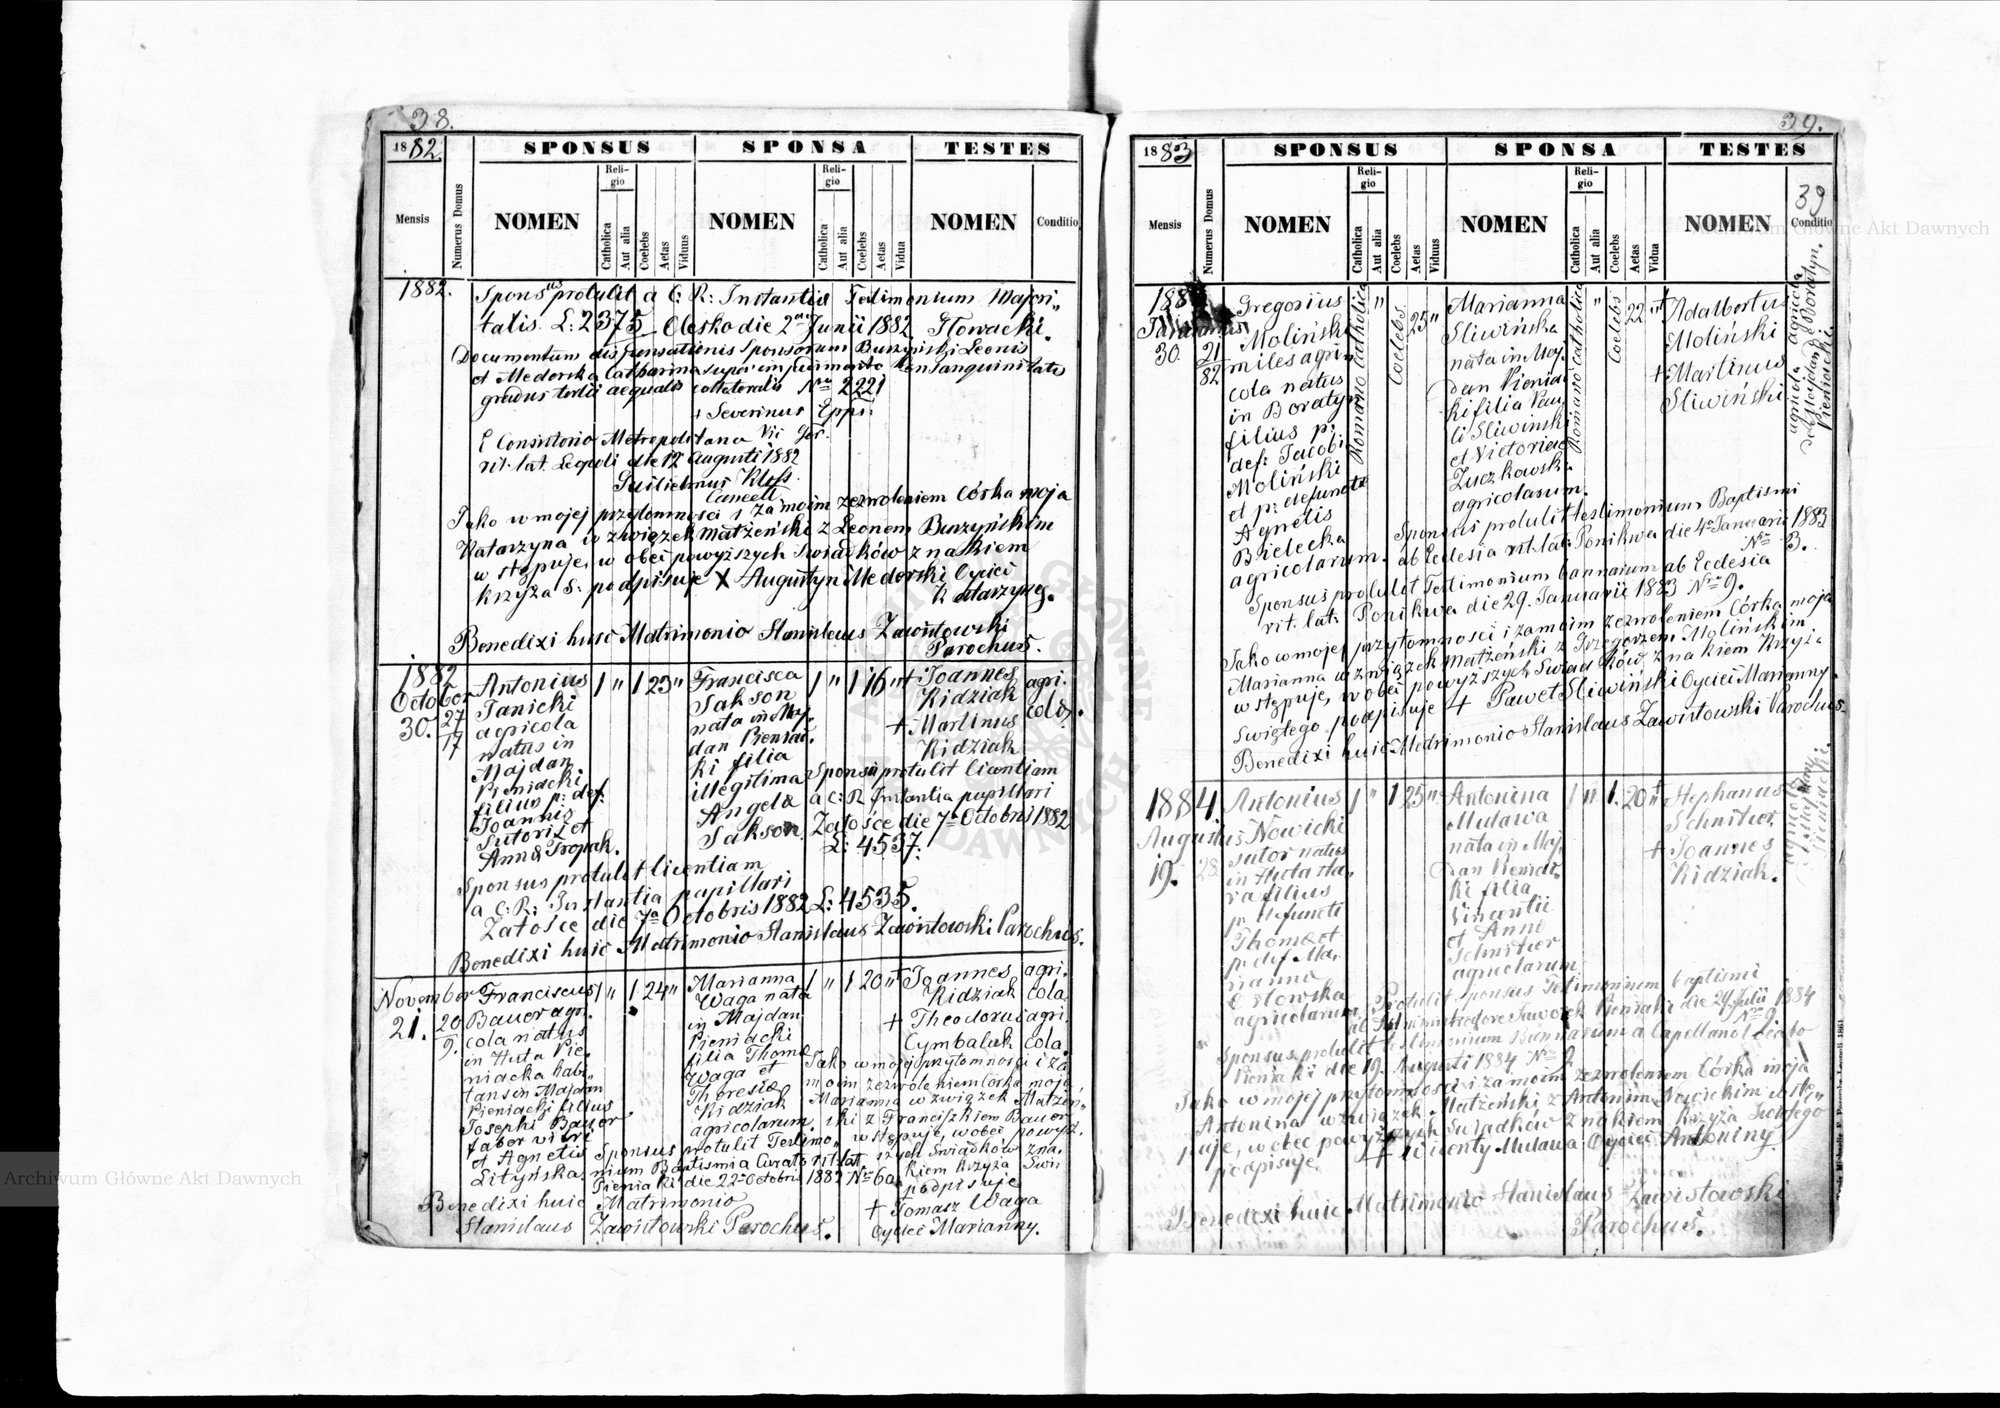 38.
1882.
SPONSUS
SPONSA
TESTES
Mensis
Numerus Domus
NOMEN
Religio
Catholica
Aut alia
Coelebs
Aetas
Viduus
NOMEN
Religio
Catholica
Aut alia
Coelebs
Aetas
Vidua
NOMEN
Conditio
1882.
Sponsus protulit a C: R: Instantia Testimonium Majori„
talis L: 2375 Olesko die 2 Junii 1882 Głowacki.
Documentum dispensationis Sponsorum Burzyński Leonis
et Medorska Catharina super impedimento Consanguinitatis
gradus tertii aequalis collateralis Nro 2221
+ Severinus Epps:
E Consistorio Metropolitana
rit. lat. Leopoli die 12 Augusti 1882
Guilielmus Kloss.
Cancell.
Jako w mojej przytomności i za moim zezwoleniem Córka moja
Katarzyna w związek Małżeński z Leonem Burzyńskim
w stępuje, w obec powyższych Świadków znakiem
krzyża S. podpisuje X Augustyn Medorski Ojciec
Katarzyny.
Benedixi huic Matrimonio Stanislaus Zawistowski
Parochus.
1882
October
30. 27/17
Antonius
Janicki
agricola
natus in
Majdan
Pieniacki
filius p: def:
Joannis
Sutoris et
Anna Tropak.
1 „ 1 23 „
Francisca
Sakson
nata in Maj.
dan Pieniac.
ki filia
illegitima
Angela
Sakson.
1 „ 1 16 „
+ Joannes
Kidziak
+ Martinus
Kidziak
agri.
cola.
Sponsa protulit licentiam
a C: R Instantia pupillari
Załośce die 7 Octobri 1882
L: 4537.
Sponsus protulit licentiam
a C: R: Instantia pupillari
Załośce die 7a Octobris 1882 L: 4535.
Benedixi huic Matrimonio Stanislaus Zawistowski Parochus.
November
21. 20/9.
Franciscus
Bauer agri.
cola natus
in Huta Pie.
niacka habi„
tans in Majdan
Pieniacki filius
Josephi Bauer
fabor vitri
et Agnetis
Lityńska.
1 „ 1 24 „
Marianna
Waga nata
in Majdan
Pieniacki
filia Thoma
Waga et
Theresia
Kidziak
agricolarum.
1 „ 1 20 „
+ Joannes
Kidziak
+ Theodorus
Cymbaluk
agri.
cola
agri.
cola.
Jako w mojej przytomności i za
moim zezwoleniem Córka moja
Marianna w związek Małżeń„
ski z Franciszkiem Bauer
wstępuje, w obec powyż.
szych Świadków zna.
kiem Krzyża Świ
podpisuje
+ Tomasz Waga
Ojciec Marianny.
Sponsus protulit Testimo„
nium Baptismi a Curato rit. lat.
Pieniaki die 22 Octobris 1882 Nro 60
Benedixi huic Matrimonio
Stanislaus Zawistowski Parochus.
39.
1883
SPONSUS
SPONSA
TESTES
Mensis
Numerus Domus
NOMEN
Religio
Catholica
Aut alia
Coelebs
Aetas
Viduus
NOMEN
Religio
Catholica
Aut alia
Coelebs
Aetas
Vidua
NOMEN
39
Conditio
188
Januarius
30. 21/82
Gregorius
Moliński
miles agri
cola natus
in Boratyn
filius p:
def: Jacobi
Moliński
et p: defuncta
Agnetis
Bielecka
agricolarum.
Romano Catholica
„
Coelebs
25 „
Marianna
Sliwińska
nata in Maj.
dan Pieniac
ki filia Pau„
li Sliwiński
et Victoriae
Zuczkowska
agricolarum.
Romano Catholica
„
Coelebs
22 „
+ Adalbertus
Moliński
+ Martinus
Sliwiński
agricola agricola
de Majdan de Boratyn.
Pieniacki
Sponsus protulit testimonium Baptismi
ab Ecclesia rit. lat. Ponikwa die 4 Januarii 1883
Nro 3.
Sponsus protulit Testimonium bannorum ab Ecclesia
rit. lat. Ponikwa die 29. Januarii 1883 Nro 9.
Jako w mojej przytomności i za moim zezwoleniem Córka moja
Marianna w związek Małżeński z Grzegorzem Molińskim
wstępuje, w obec powyższych Świadków, znakiem Krzyża
Świętego podpisuje + Paweł Sliwiński Ojciec Marianny.
Benedixi huic Matrimonio Stanislaus Zawistowski Parochus.
1884.
Augustus
19. 28
Antonius
Nowicki
sutor natus
in Huta
filius
p: defuncti
Thoma et
p: def. Ma.
rianna
Ostowska
agricolarum.
1 „ 1 25 „
Antonina
Mulawa
nata in Maj.
dan Pieniac.
ki filia
Vincentii
et Anna
Schnitzer
agricolarum
1 „ 1. 20 „
+ Stephanus
Schnitzer.
+ Joannes
Kidziak.
Pieniacki
Protulit sponsus Testimonium baptismi
ab Administratore Jaworek Pieniaki die 29 Julii 1884
Nro 9
Sponsus protulit testimonium Bannorum a Capellano
Pieniaki die 19. Augusti 1884 Nro
Jako w mojej przytomności i za moim zezwoleniem Córka moja
Antonina w związek Małżeński z Antonim Nowickim wstę„
puje, w obec powyższych Świadków znakiem Krzyża Świętego
podpisuje + Wincenty Mulawa Ojciec Antoniny.
Benedixi huic Matrimonio Stanislaus Zawistowski
Parochus.
Archiwum Główne Akt Dawnych
Archiwum Główne Akt Dawnych
ARCHIWUM GŁÓWNE AKT DAWNYCH